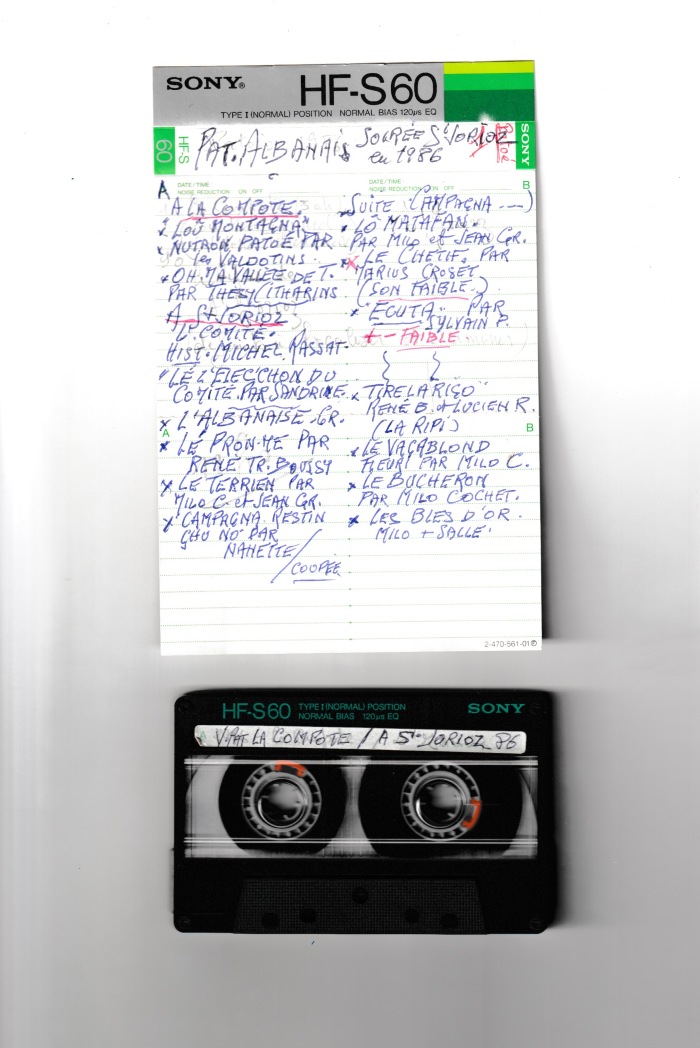 SONY®
HF-S60
TYPE I (NORMAL) POSITION NORMAL BIAS 120µs EQ
60
HF-S
SONY
PAT. ALBANAIS SOIRÉE St JORIOZ
en 1986
A
DATE/TIME
NOISE REDUCTION ON OFF
"A LA COMPOTE.
* LOÛ MONTAGNA"
* NUTRON PATOÉ PAR
les VALDOTINS
* OH. MA VALLÉE DE T.
PAR THESY CITHARINS
A St JORIOZ
"L. COMITÉ.
HIST. MICHEL RASSAT
"LÉ L'ELECCHON DU
COMITÉ PAR SANDRINE
* L'ALBANAISE. GR.
A
* LÉ PRON-ME PAR
RENÉ TR. BOUSSY
* LE TERRIEN PAR
MILO C. et JEAN GR.
* CAMPAGNA RESTIN
CHU NO PAR
NANETTE
/ COUPÉE
B
DATE/TIME
NOISE REDUCTION ON OFF
SUITE (CAMPAGNA ---)
* LÔ MATAFAN.
PAR MILO et JEAN GR.
* LE CHETIF. PAR
MARIUS CROSET
(SON FAIBLE.)
* "ECUTA" PAR
SYLVAIN P.
+ - FAIBLE
* TIRELARIGO
RENÉ B. + LUCIEN R.
(LA RIPI)
B
* LE VAGABLOND
FLEURI PAR MILO C.
* LE BUCHERON
PAR MILO COCHET.
* LES BLES D'OR.
MILO + SALLE.
2-470-561-01
HF-S60 TYPE I (NORMAL) POSITION
NORMAL BIAS 120µs EQ
SONY
A V. PAT LA COMPOTE / A St JORIOZ 86